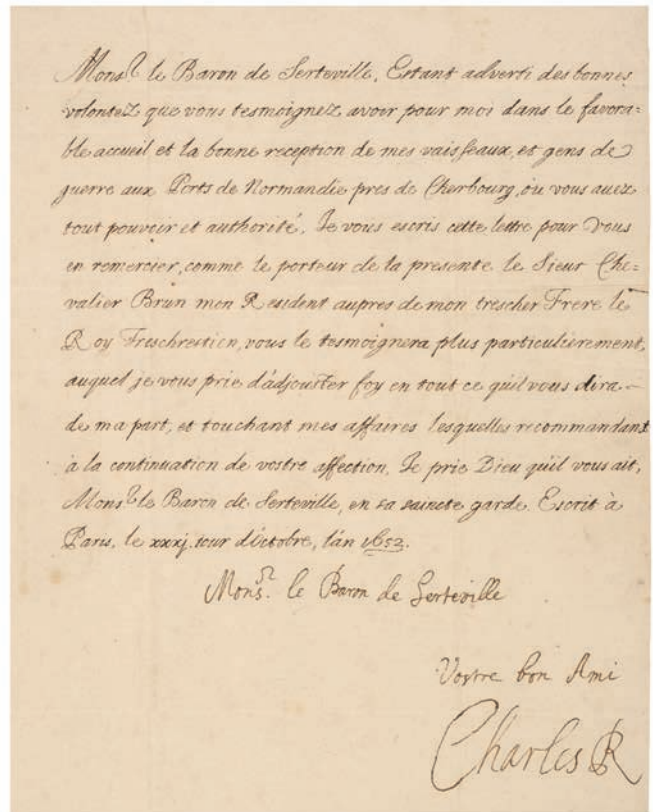 Monsr. le Baron de Serteville, Estant adverti des bonnes
volontez que vous tesmoignez avoir pour moi dans le favora=
ble accueil et la bonne reception de mes vaisseaux, et gens de
guerre aux Ports de Normandie pres de Cherbourg, où vous avez
tout pouvoir et authorité, Je vous escris cette lettre pour vous
en remercier, comme le porteur de la presente le Sieur Che=
valier Brun mon Resident aupres de mon trescher Frere le
Roy Treschrestien, vous le tesmoignera plus particulierement,
auquel je vous prie d'adjouster foy en tout ce qu'il vous dira
de ma part, et touchant mes affaires lesquelles recommandant
à la continuation de vostre affection, Je prie Dieu qu'il vous ait,
Monsr. le Baron de Serteville, en sa saincte garde. Escrit à
Paris, le xxxj. iour d'Octobre, l'an 1652.
Monsr. le Baron de Serteville
Vostre bon Ami
Charles R